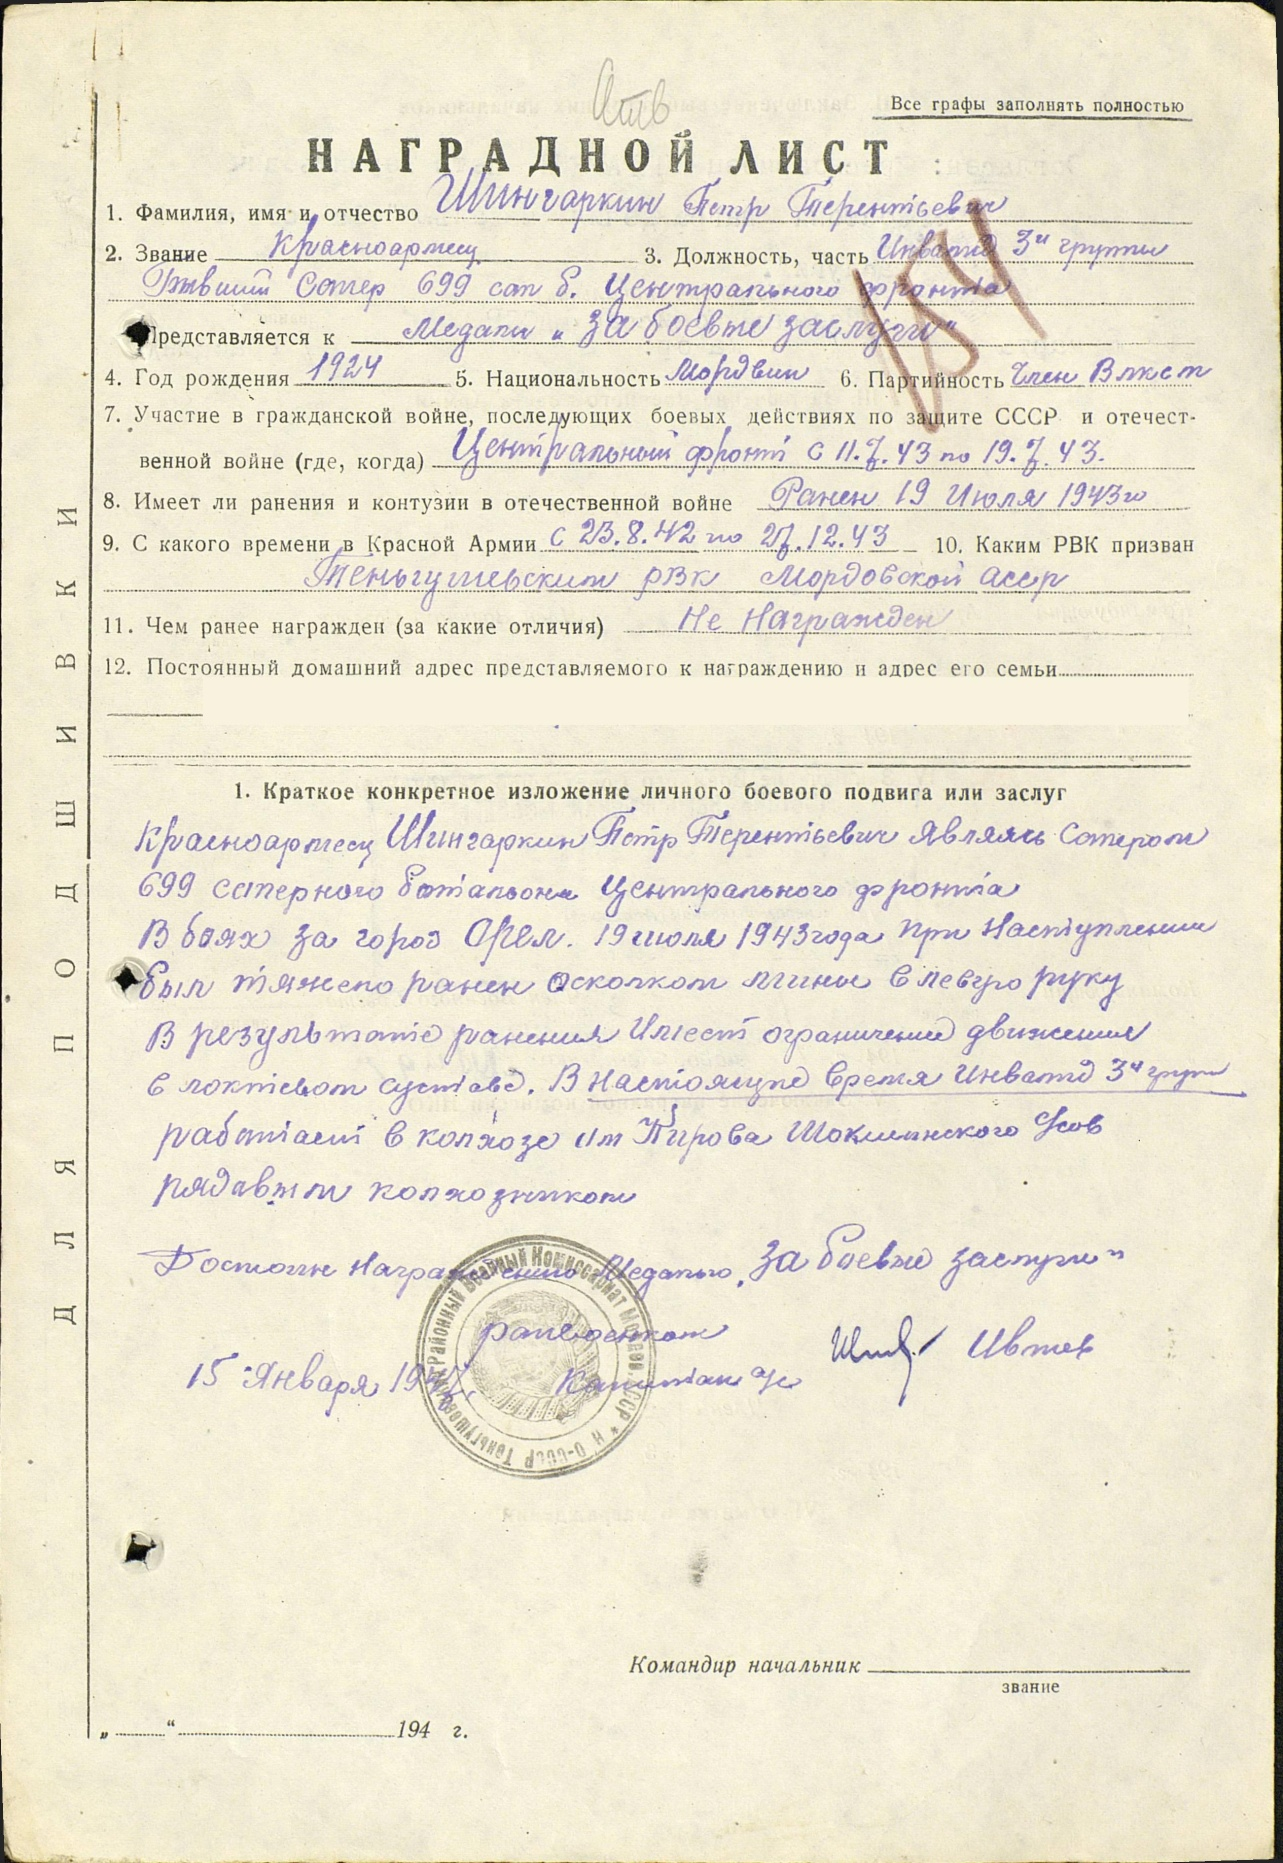 Все графы заполнять полностью
НАГРАДНОЙ ЛИСТ
184
1. Фамилия, имя и отчество Шингаркин Петр Терентьевич
2. Звание Красноармеец 3. Должность, часть Инвалид 3й группы
Бывший Сапер 699 сап б. Центрального фронта
Представляется к Медали „За боевые заслуги"
4. Год рождения 1924 5. Национальность Мордвин 6. Партийность Член Влксм
7. Участие в гражданской войне, последующих боевых действиях по защите СССР и отечест-
венной войне (где, когда) Центральный фронт с 11.7.43 по 19.7.43.
8. Имеет ли ранения и контузии в отечественной войне Ранен 19 Июля 1943го
9. С какого времени в Красной Армии с 23.8.42 по 27.12.43 10. Каким РВК призван
Теньгушевским РВК Мордовской АССР
11. Чем ранее награжден (за какие отличия) Не Награжден
12. Постоянный домашний адрес представляемого к награждению и адрес его семьи
1. Краткое конкретное изложение личного боевого подвига или заслуг
Красноармеец Шингаркин Петр Терентьевич Являясь Сапером
699 саперного батальона Центрального фронта
В боях за город Орел. 19 июля 1943 года при Наступлении
был тяжело ранен осколком мины в левую руку
В результате ранения Имеет ограничение движения
в локтевом суставе. В Настоящее время Инвалид 3й групп
работает в колхозе им Кирова Шокшинского с/сов
рядавым колхозником
Достоин Награждению Медалью „За боевые заслуги"
райвоенком
15 Января 194 Капитан а/с Ивлев
Теньгушевский Районный Военный Комиссариат Мордов. АССР * НКО-СССР
Командир начальник
звание
„ “ 194 г.
ДЛЯ ПОДШИВКИ